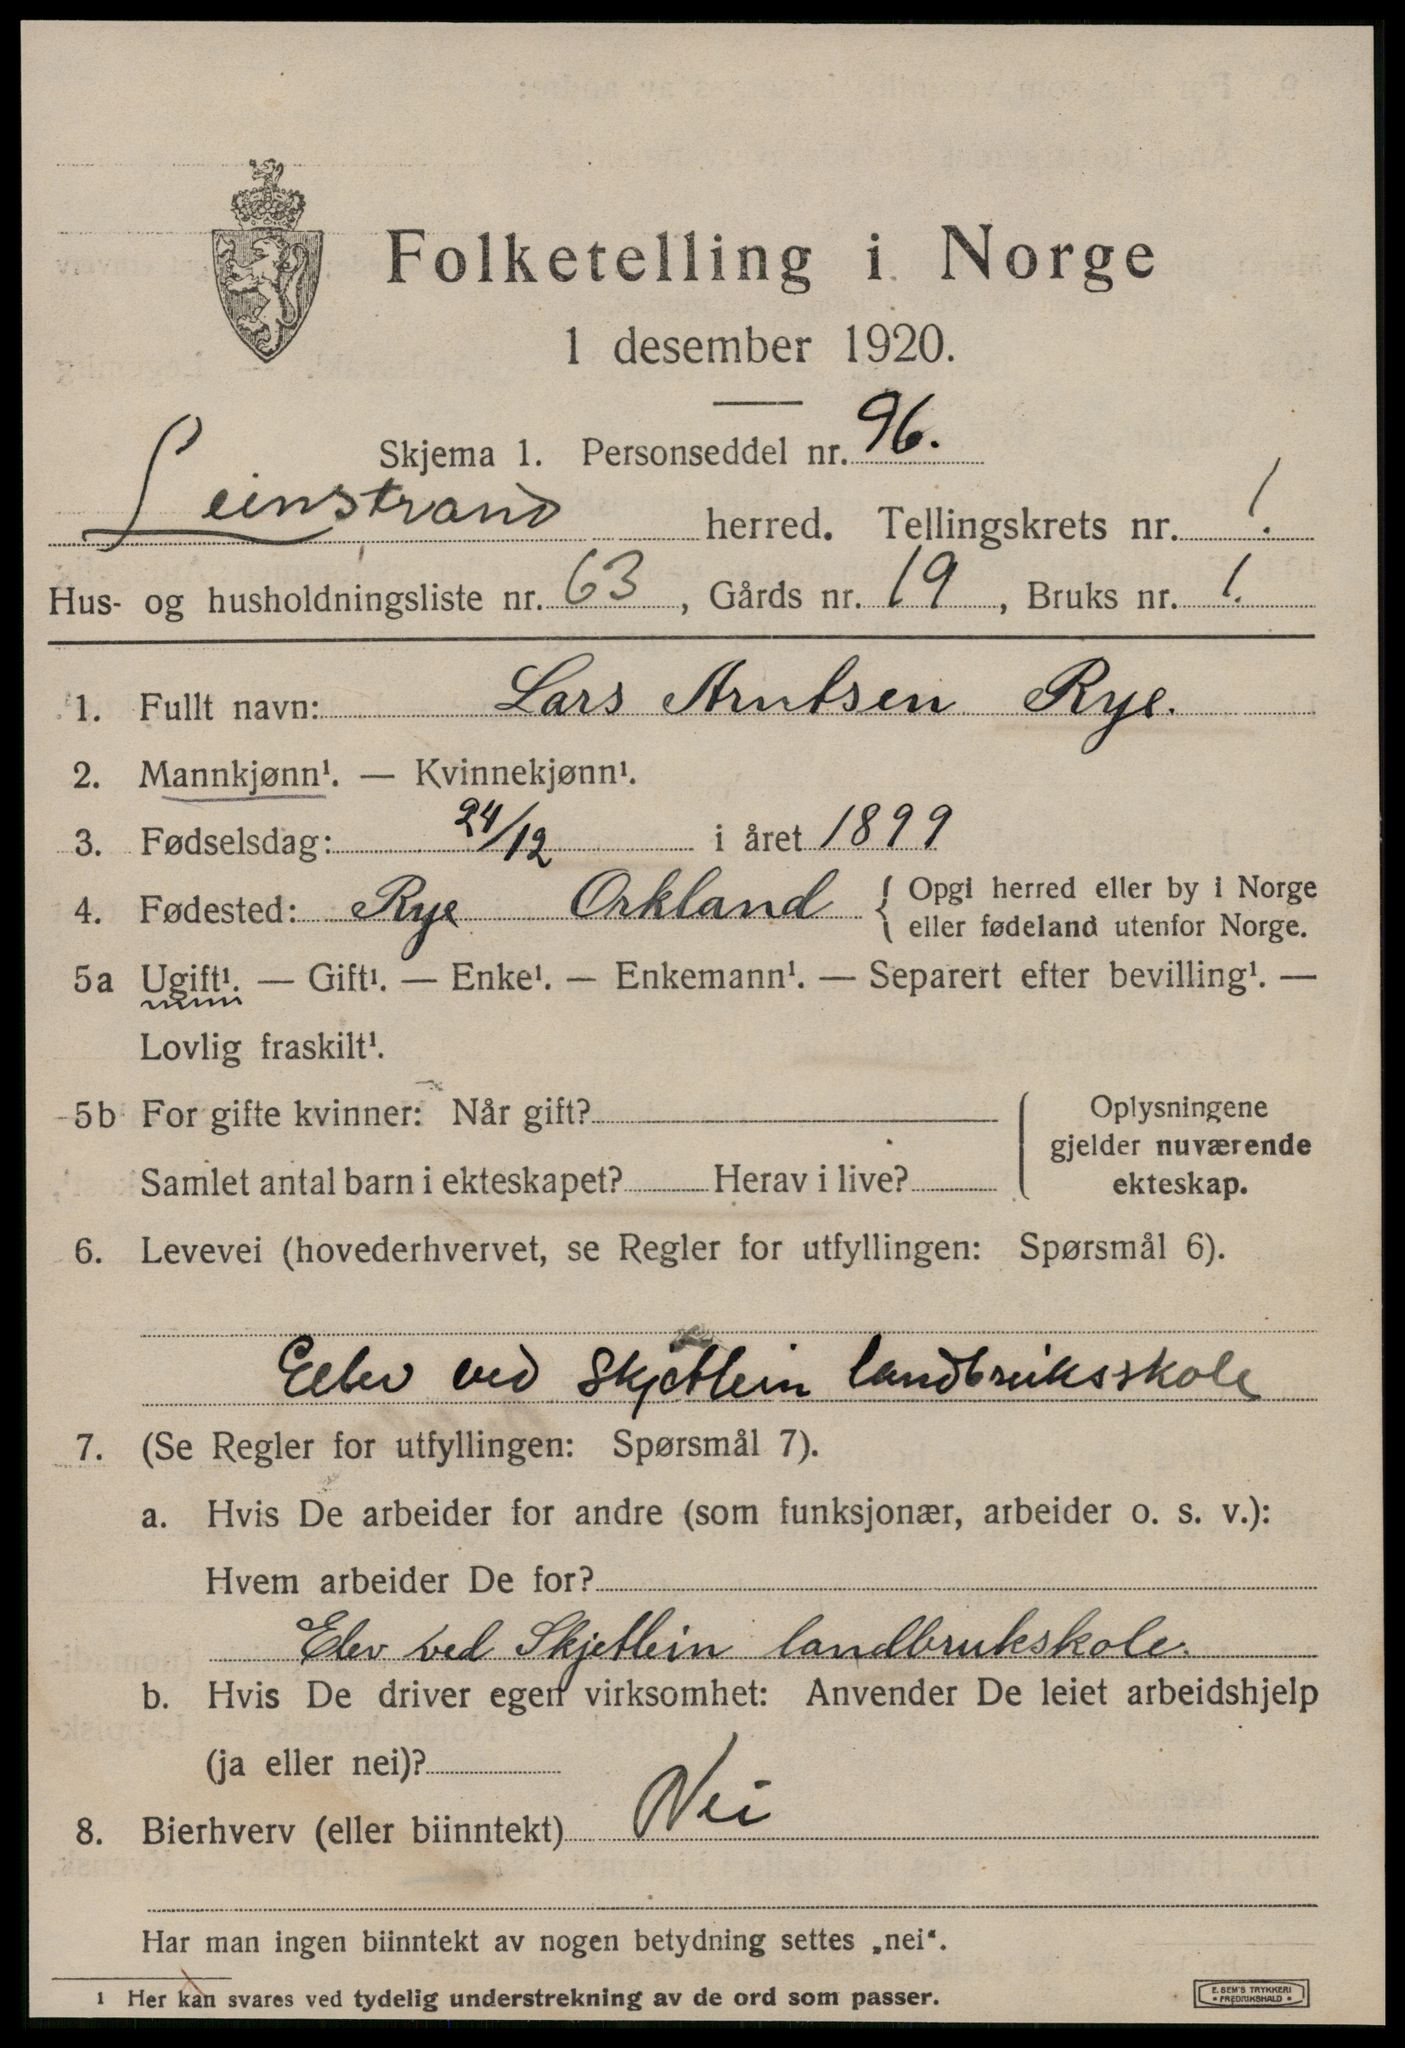 Folketelling i Norge
1 desember 1920.
Skjema 1. Personseddel nr. 96.
Leinstrand herred. Tellingskrets nr. 1.
Hus- og husholdningsliste nr. 63, Gårds nr. 19, Bruks nr. 1.
1. Fullt navn: Lars Arntsen Rye.
2. Mannkjønn¹. — Kvinnekjønn¹.
3. Fødselsdag: 24/12 i året 1899
4. Fødested: Rye Orkland { Opgi herred eller by i Norge
eller fødeland utenfor Norge.
5a Ugift¹. — Gift¹. — Enke¹. — Enkemann¹. — Separert efter bevilling¹. —
Lovlig fraskilt¹.
5b For gifte kvinner: Når gift?
Samlet antal barn i ekteskapet? Herav i live?
Oplysningene
gjelder nuværende
ekteskap.
6. Levevei (hovederhvervet, se Regler for utfyllingen: Spørsmål 6).
Elev ved Skjetlein landbruksskole
7. (Se Regler for utfyllingen: Spørsmål 7).
a. Hvis De arbeider for andre (som funksjonær, arbeider o. s. v.):
Hvem arbeider De for?
Elev ved Skjetlein landbrukskole.
b. Hvis De driver egen virksomhet: Anvender De leiet arbeidshjelp
(ja eller nei)?
8. Bierhverv (eller biinntekt) Nei
Har man ingen biinntekt av nogen betydning settes „nei“.
¹ Her kan svares ved tydelig understrekning av de ord som passer.
E. SEM'S TRYKKERI
• FREDRIKSHALD •